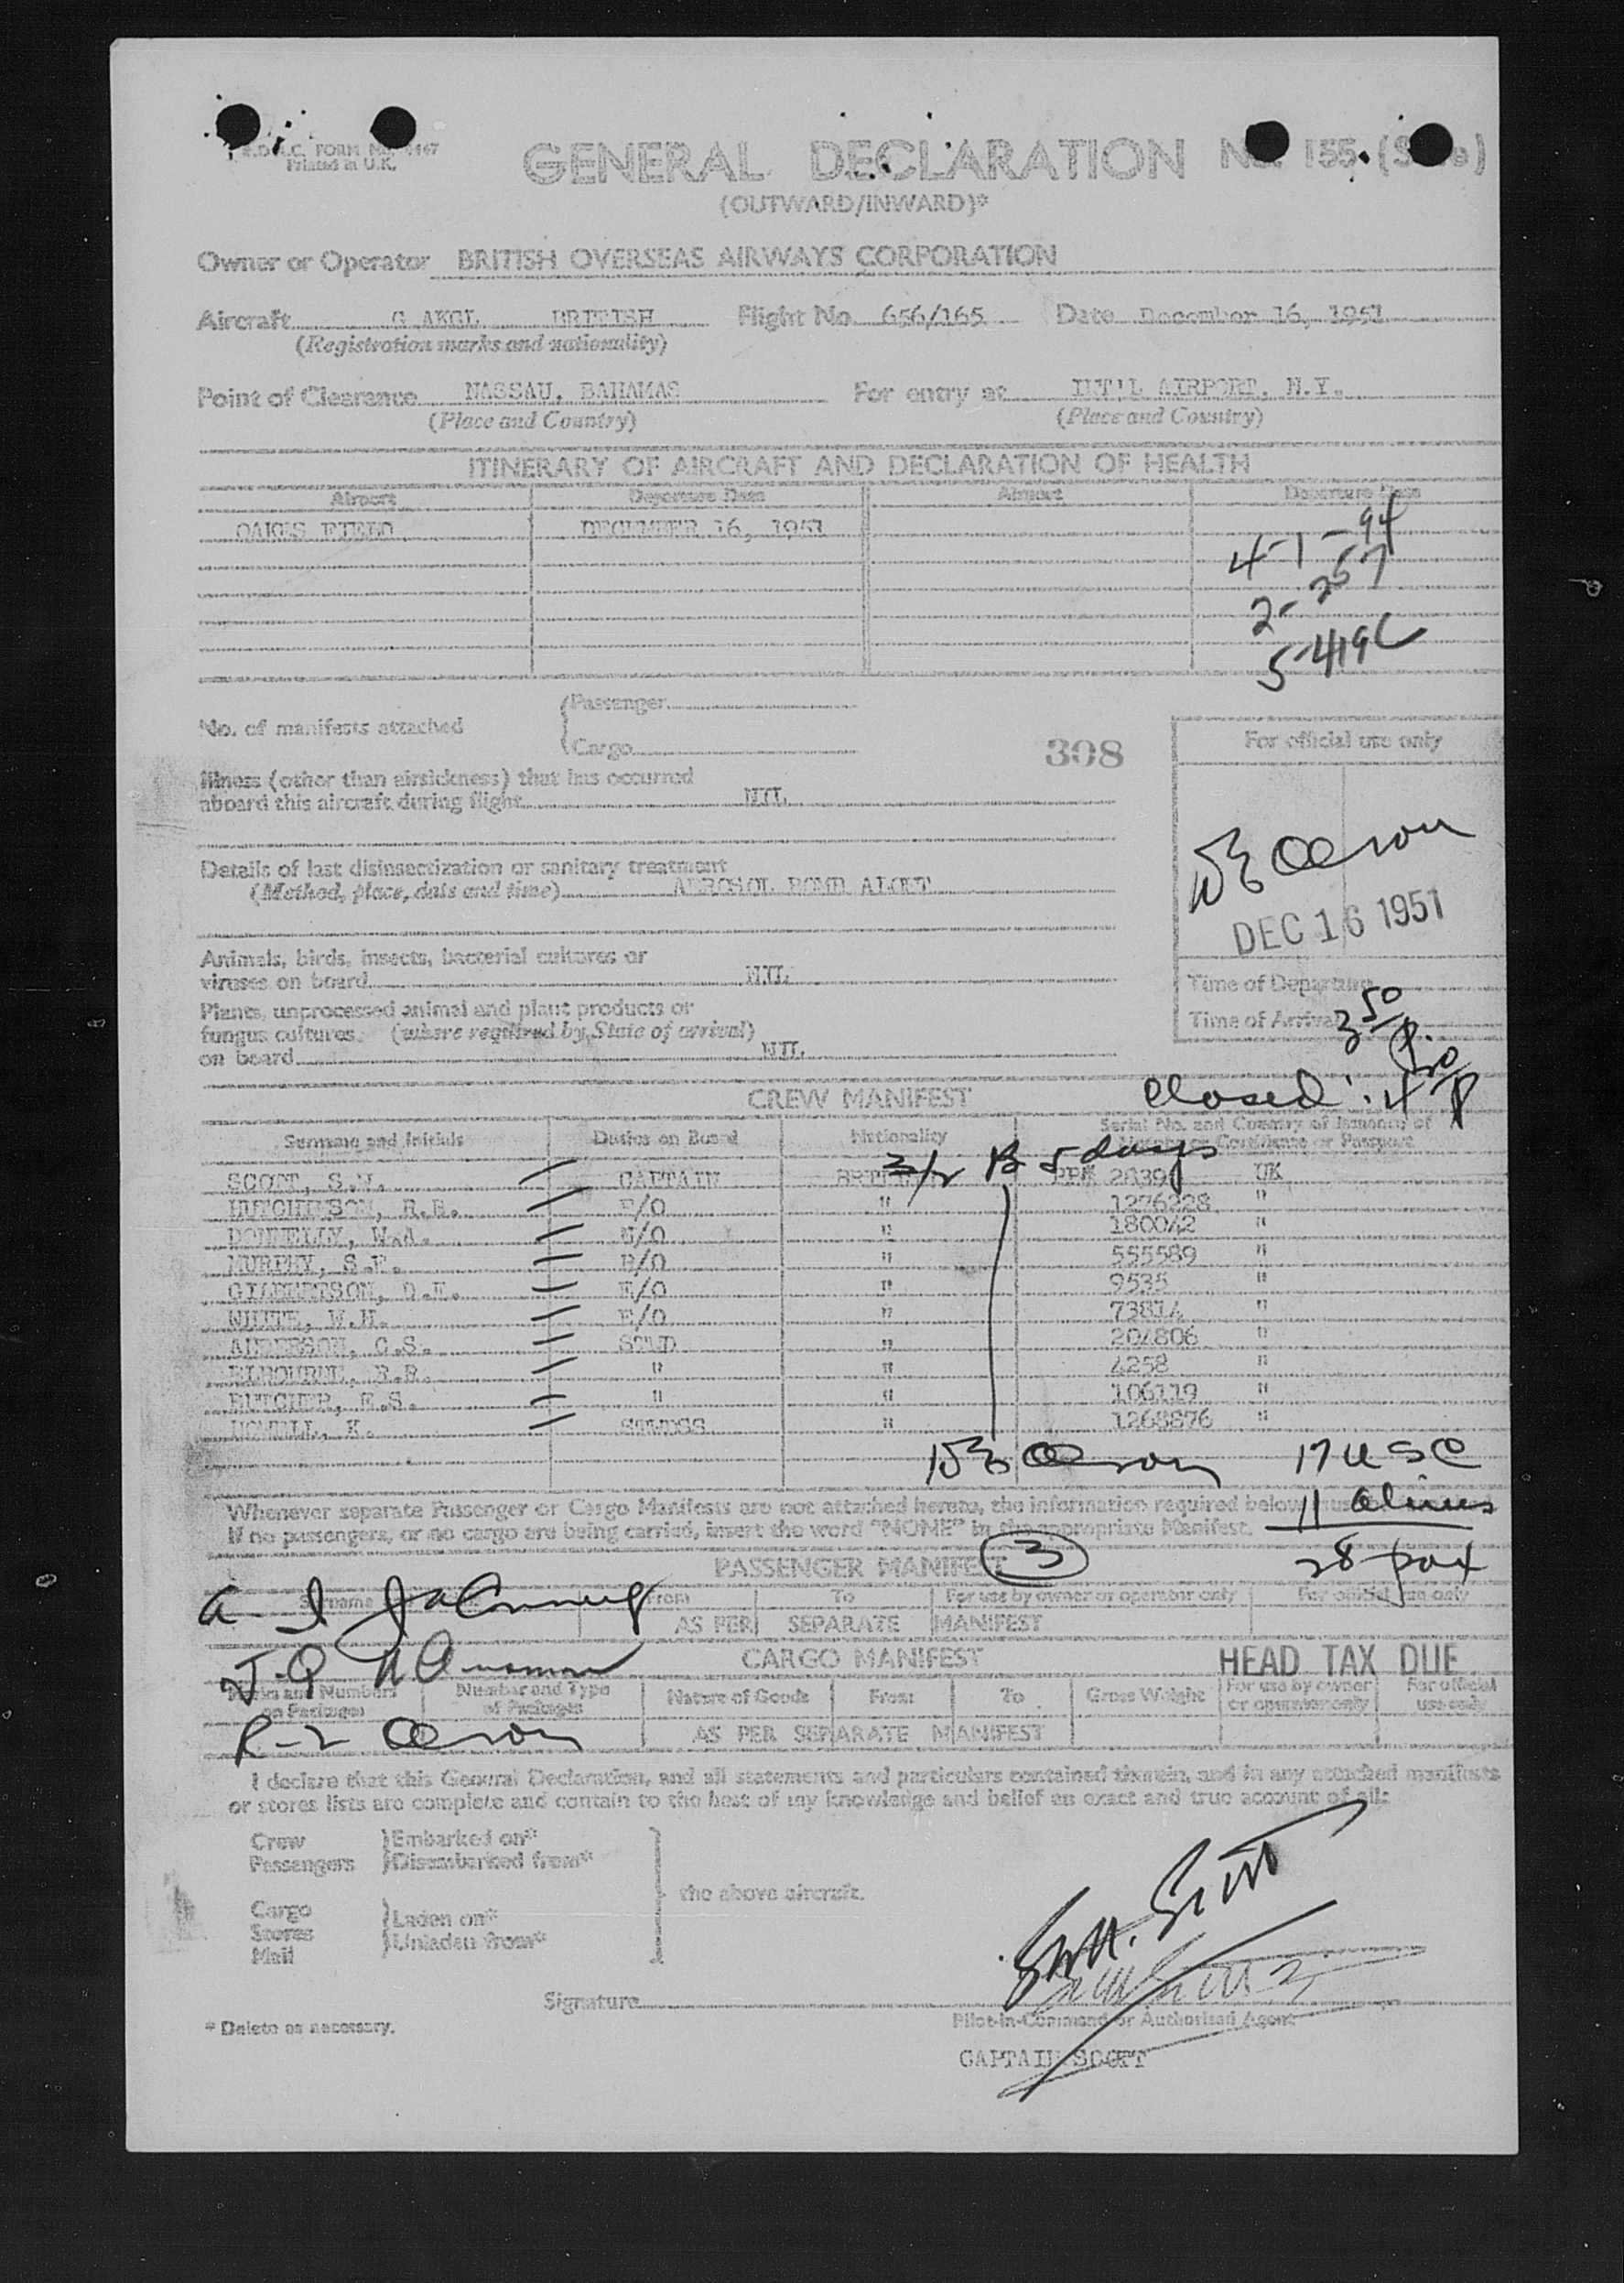 FORM
Printed in U.K.
GENERAL DECLARATION 155
(OUTWARD/INWARD)*
Owner or Operator BRITISH OVERSEAS AIRWAYS CORPORATION
Aircraft BRITISH Flight No. 656/165 Date December 16, 1951
(Registration marks and nationality)
Point of Clearance NASSAU, BAHAMAS For entry at INT'L AIRPORT, N.Y.
(Place and Country) (Place and Country)
ITINERARY OF AIRCRAFT AND DECLARATION OF HEALTH
Airport Departure Date Airport Departure Date
OAKES FIELD DECEMBER 16, 1951
4-1-94
2-257
5-419C
No. of manifests attached {Passenger
Cargo
308
For official use only
Illness (other than airsickness) that has occurred
aboard this aircraft during flight NIL
Details of last disinsectization or sanitary treatment
(Method, place, date and time) AEROSOL BOMB ALOFT
DEC 16 1951
Animals, birds, insects, bacterial cultures or
viruses on board NIL
Time of Departure
Plants, unprocessed animal and plant products or
fungus cultures (where required by State of arrival)
on board NIL
Time of Arrival 3 50 P.
Closed: 4 P
CREW MANIFEST
Surname and Initials Duties on Board Nationality Serial No. and Country of Issuance of
Certificate or Passport
3/2 B 5 days
SCOTT, CAPTAIN PP# UK
HUTCHINSON, R.B. F/O " 1276228 "
DONNELLY, W.A. N/O " 180042 "
MURPHY, R/O " 555589 "
GILBERTSON, E/O " 9535 "
WHITE, W.H. E/O " 73814 "
ANDERSON, C.S. STWD " 204806 "
" " 4258 "
BUTCHER, E.S. " " 106119 "
K. STWDSS " 1268876 "
17 USC
11 Aliens
28 pax
Whenever separate Passenger or Cargo Manifests are not attached hereto, the information required below must
If no passengers, or no cargo are being carried, insert the word "NONE" in the appropriate Manifest.
PASSENGER MANIFEST 3
Surname From To For use by owner or operator only For official use only
AS PER SEPARATE MANIFEST
CARGO MANIFEST
HEAD TAX DUE
Marks and Numbers on Packages Number and Type of Packages Nature of Goods From To Gross Weight For use by owner or operator only For official use only
AS PER SEPARATE MANIFEST
I declare that this General Declaration, and all statements and particulars contained therein, and in any attached manifests
or stores lists are complete and contain to the best of my knowledge and belief an exact and true account of all:
Crew }Embarked on*
Passengers }Disembarked from*
the above aircraft.
Cargo }Laden on*
Stores }Unladen from*
Mail
Signature
* Delete as necessary.
Pilot-in-Command or Authorised Agent
CAPTAIN SCOTT